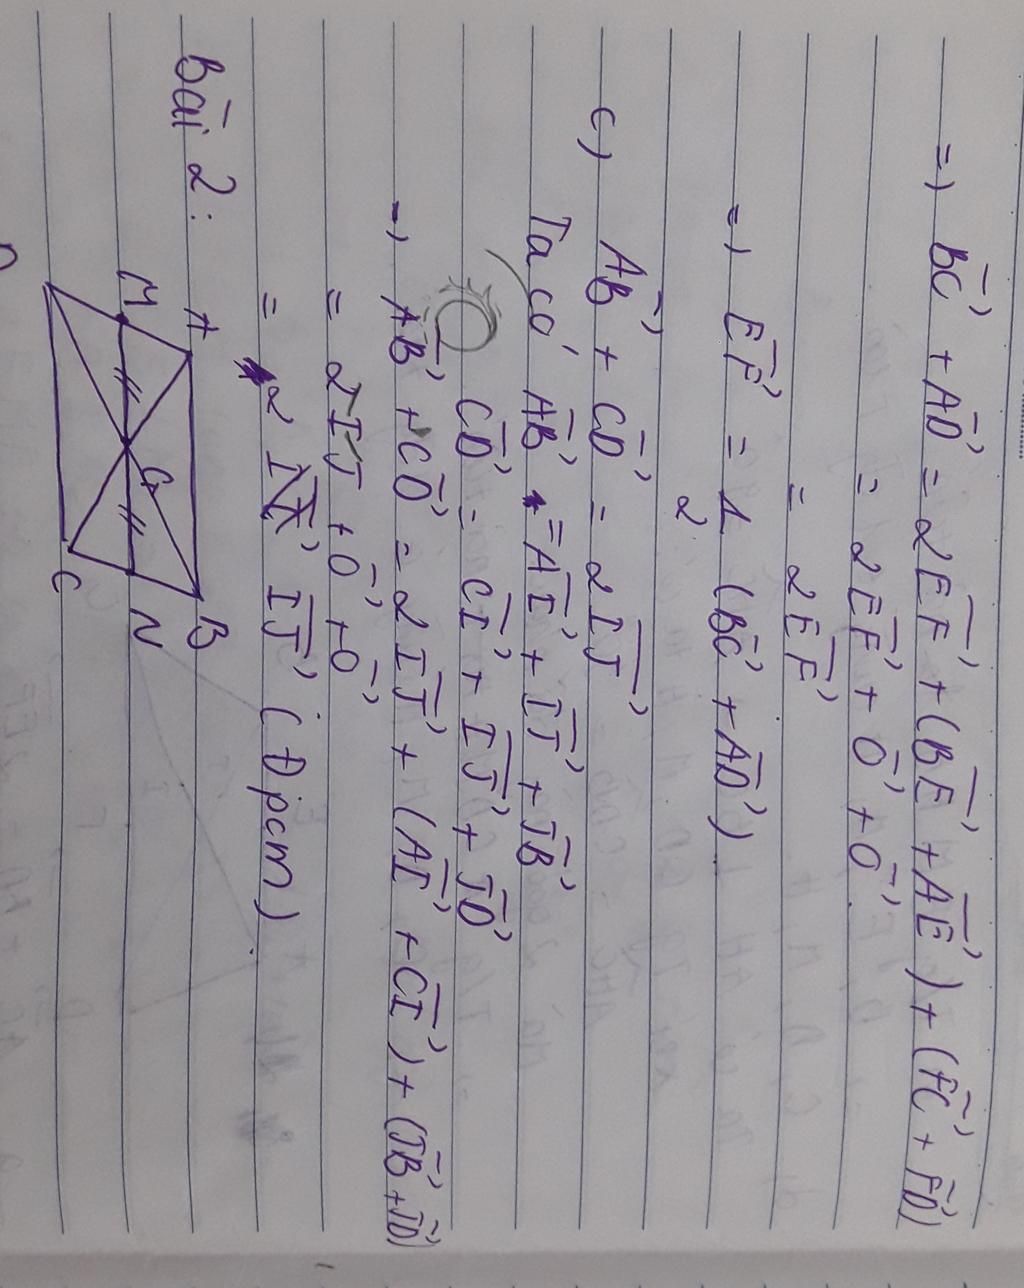 =) BC⃗ + AD⃗ = 2EF⃗ + (BE⃗ + AE⃗) + (FC⃗ + FD⃗)
= 2EF⃗ + O⃗ + O⃗
= 2EF⃗
=) EF⃗ = 1/2 (BC⃗ + AD⃗)
c) AB⃗ + CD⃗ = 2IJ⃗
Ta có AB⃗ = AI⃗ + IJ⃗ + JB⃗
CD⃗ = CI⃗ + IJ⃗ + JD⃗
=) AB⃗ + CD⃗ = 2IJ⃗ + (AI⃗ + CI⃗) + (JB⃗ + JD⃗)
= 2IJ⃗ + O⃗ + O⃗
= 2 IJ⃗ (Đpcm).
Bài 2:
A B
M G N
D C